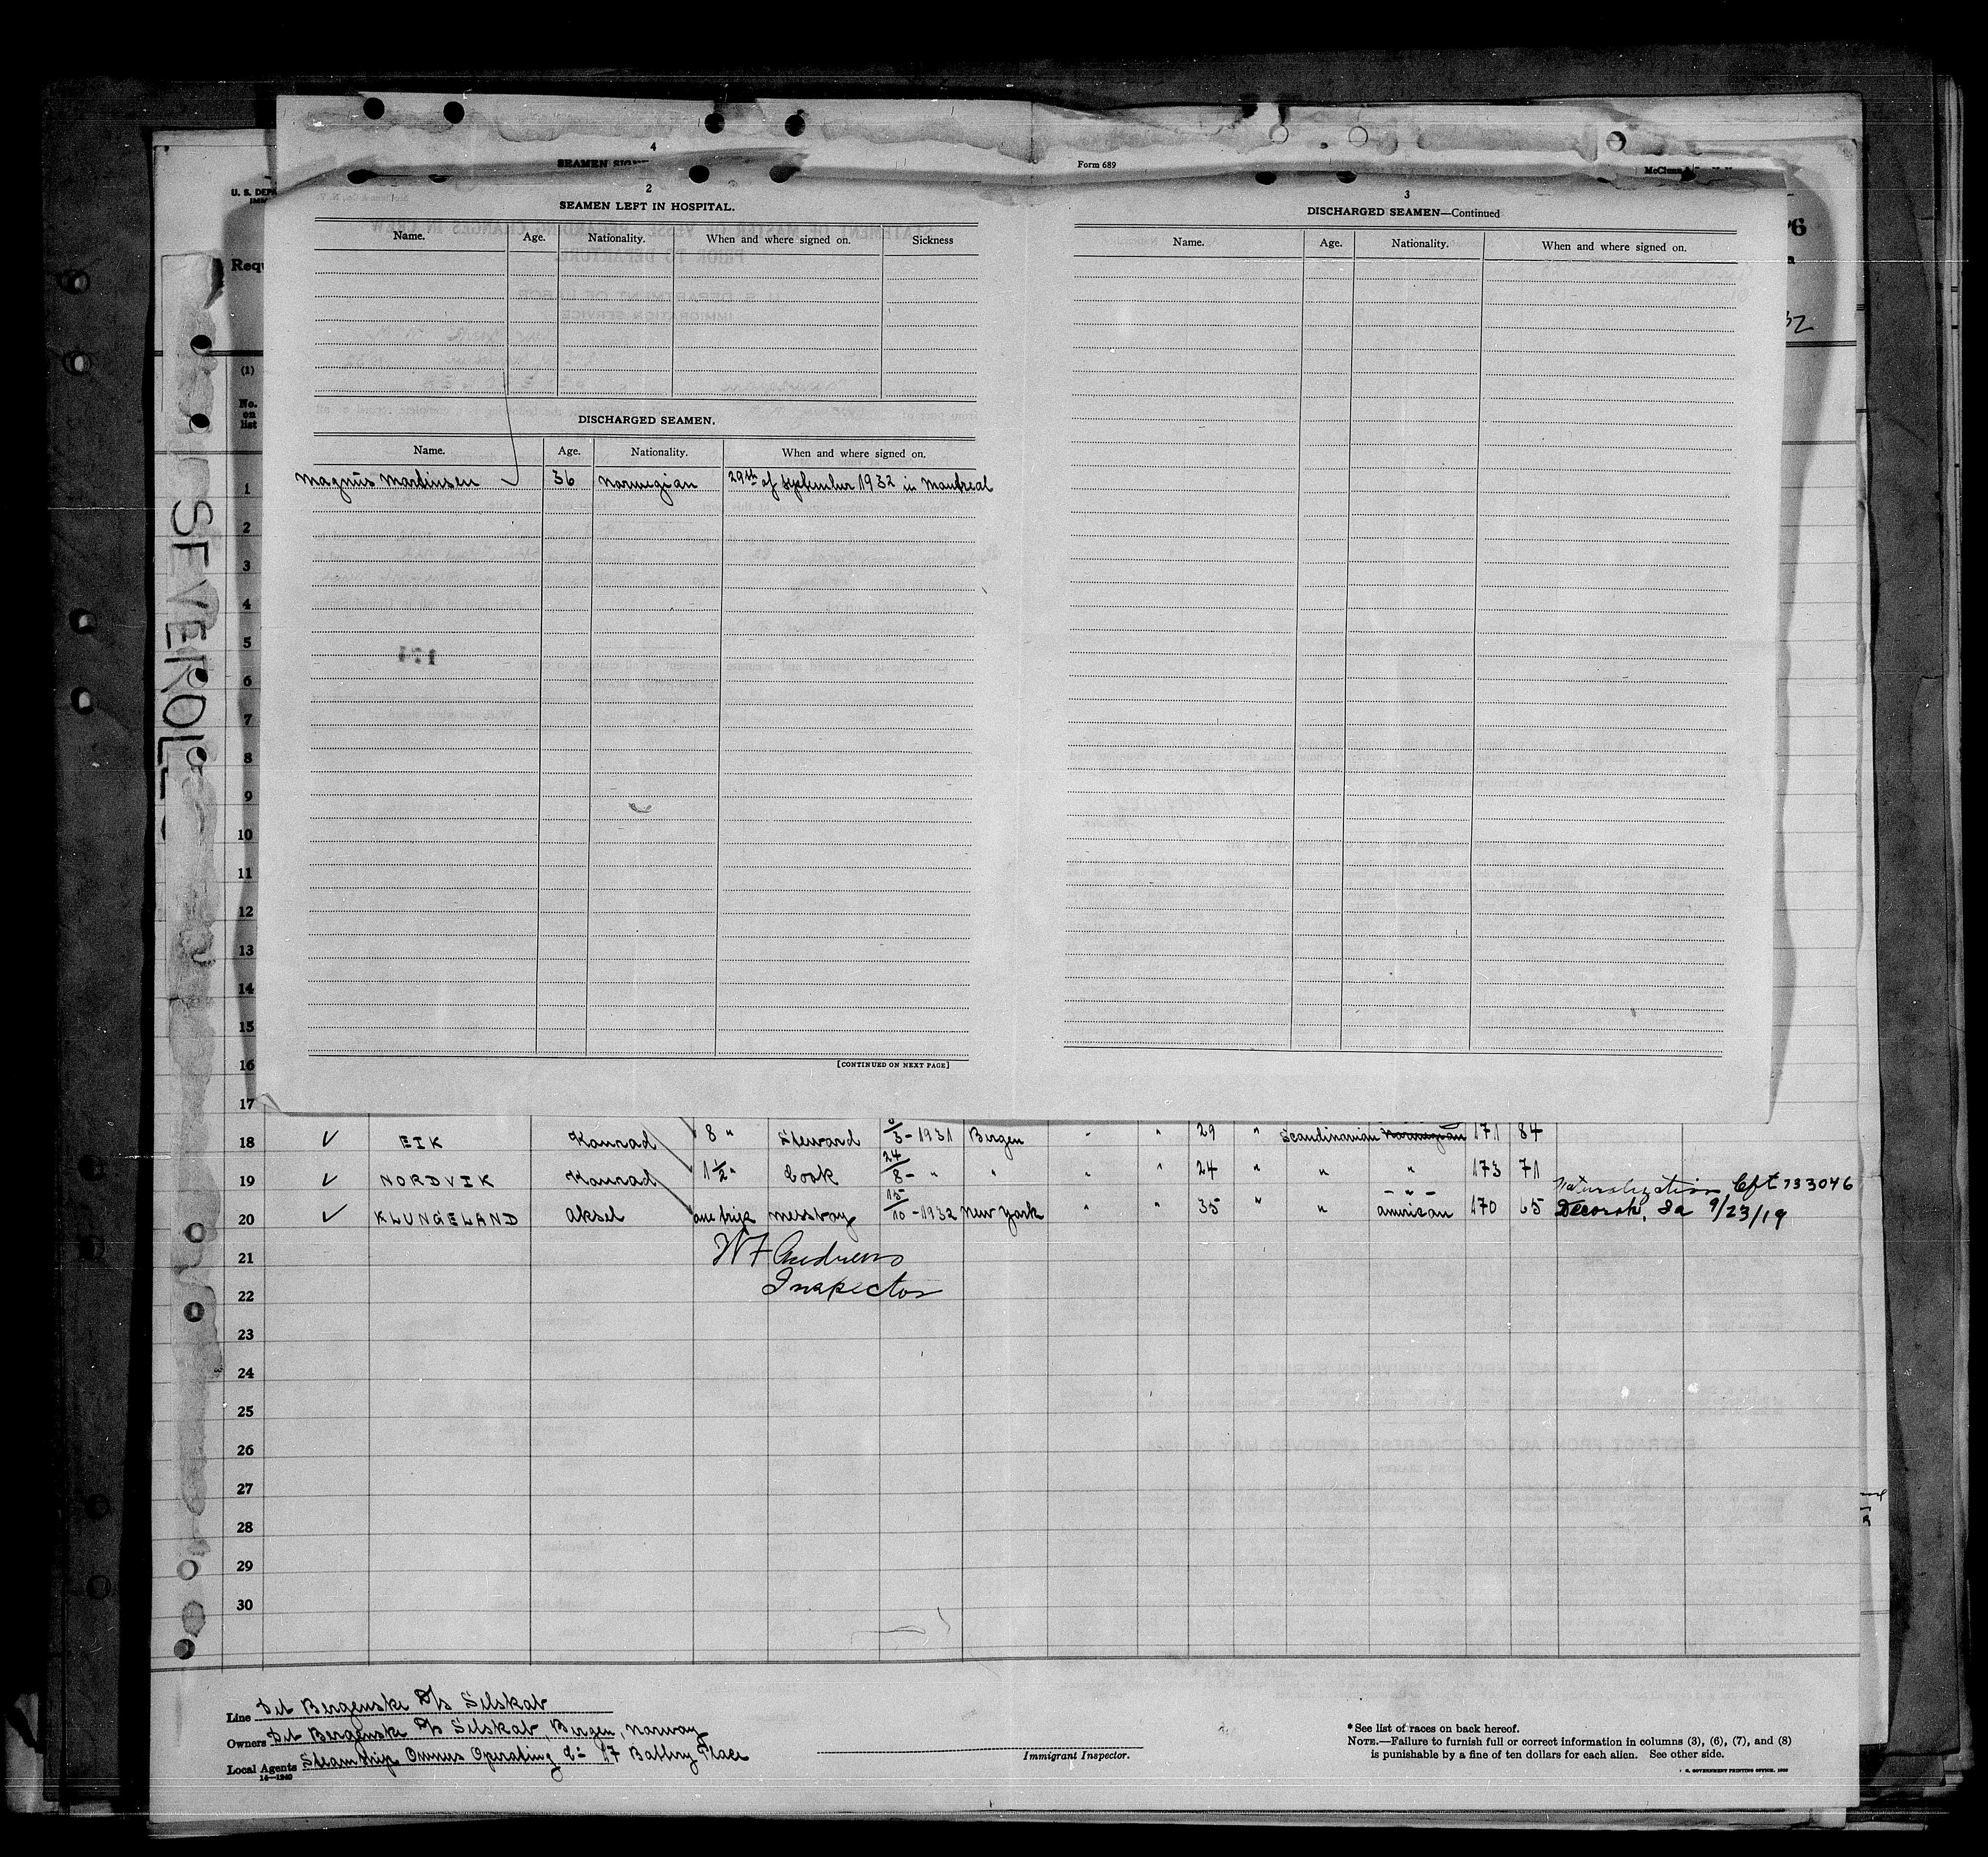 4
Form 689
2
SEAMEN LEFT IN HOSPITAL.
Name. Age. Nationality. When and where signed on. Sickness
DISCHARGED SEAMEN.
Name. Age. Nationality. When and where signed on.
Magnus Martinsen 36 Norwegian 29th of September 1932 in Montreal
[CONTINUED ON NEXT PAGE]
3
DISCHARGED SEAMEN—Continued
Name. Age. Nationality. When and where signed on.
SEVEROLE
U. S. DEPA
Requ
(1)
No. on list
1
2
3
4
5
6
7
8
9
10
11
12
13
14
15
16
17
18 ✓ EIK Konrad 8 " Steward /3-1931 Bergen " " 29 " Scandinavian Norwegian 171 84
19 ✓ NORDVIK Konrad 1½ " Cook 24/8- " " " 24 " " " 173 71
20 ✓ KLUNGELAND Aksel one trip messboy 15/10-1932 New York " " 35 " " - " - american 170 65 Naturalization Cft 733046 Decorah, Ia 9/23/19
21
22
W F Andrews
Inspector
23
24
25
26
27
28
29
30
Line Det Bergenske D/s Selskab
Owners Det Bergenske D/s Selskab, Bergen, Norway
Local Agents Steamship Owners Operating Co 17 Battery Place
14—1240
Immigrant Inspector.
* See list of races on back hereof.
NOTE.—Failure to furnish full or correct information in columns (3), (6), (7), and (8)
is punishable by a fine of ten dollars for each alien. See other side.